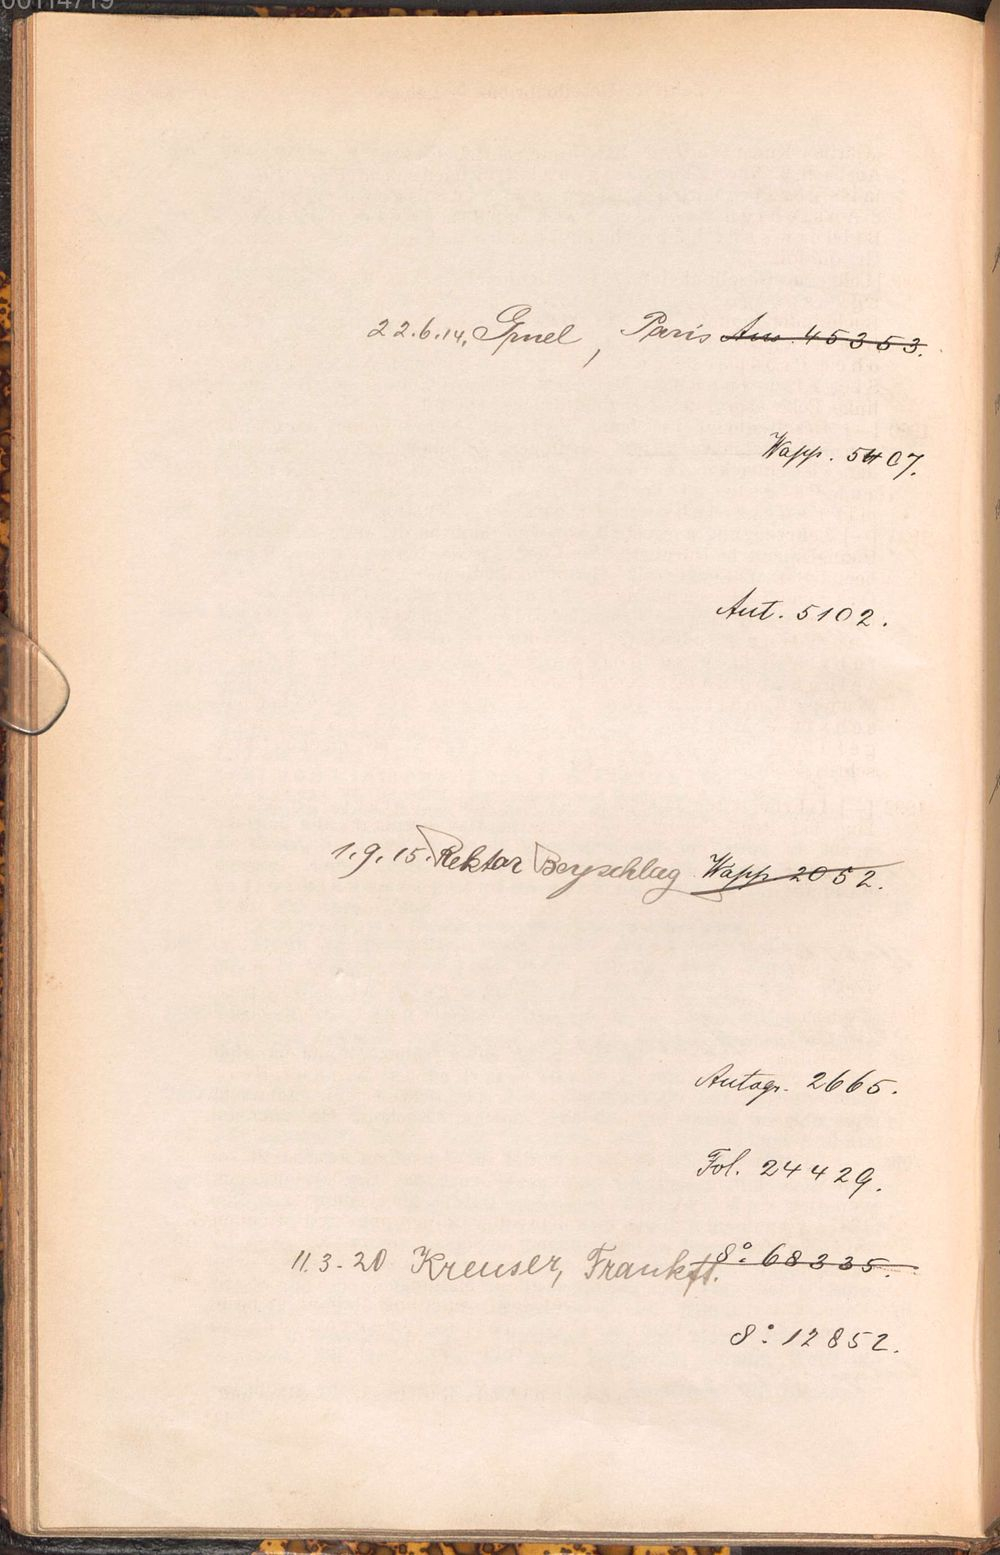 00114719
22.6.14, Gruel, Paris Aus. 45353.
Wapp. 5407.
Aut. 5102.
1.9.15. Rektor Bergschlag Wapp 2052.
Autogr. 2665.
Fol. 24429.
11.3-20 Kreuser, Frankft. 8° 68335.
8° 12852.